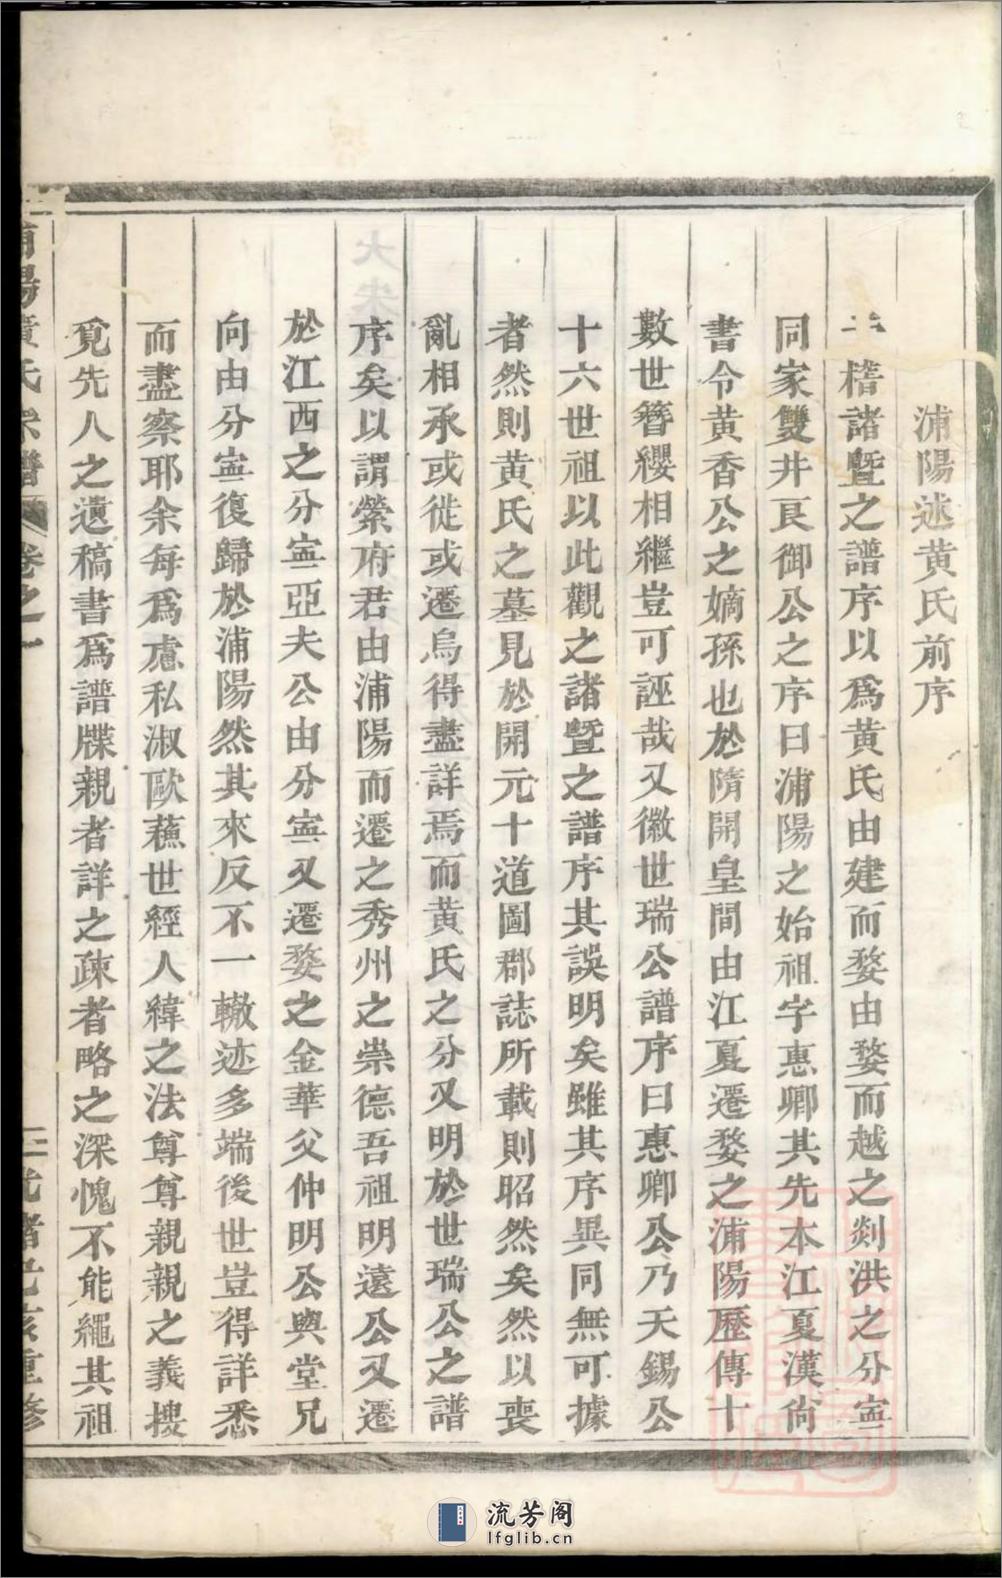 浦陽述黃氏前序
稽諸暨之譜序以爲黃氏由建而婺由婺而越之剡洪之分寍
同家雙井良御公之序曰浦陽之始祖字惠卿其先本江夏漢尙
書令黃香公之嫡孫也於隋開皇間由江夏遷婺之浦陽歷傳十
數世簪纓相繼豈可誣哉又徽世瑞公譜序曰惠卿公乃天錫公
十六世祖以此觀之諸暨之譜序其誤明矣雖其序異同無可據
者然則黃氏之墓見於開元十道圖郡誌所載則昭然矣然以喪
亂相承或徙或遷烏得盡詳焉而黃氏之分又明於世瑞公之譜
序矣以謂縈府君由浦陽而遷之秀州之崇德吾祖明遠公又遷
於江西之分寍亞夫公由分寍又遷婺之金華父仲明公與堂兄
向由分寍復歸於浦陽然其來反不一轍迹多端後世豈得詳悉
而盡察耶余每爲慮私淑歐蘓世經人緯之法尊尊親親之義搜
覓先人之遺稿書爲譜牒親者詳之疎者略之深愧不能繩其祖
陽黃氏宗譜 卷之一 光緒己亥重修
流芳阁
lfglib.cn